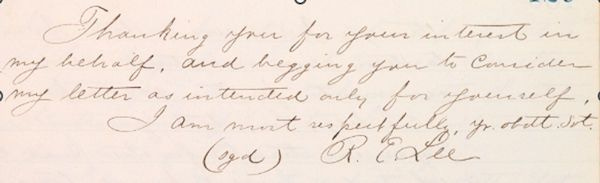 Thanking you for your interest in
my behalf, and begging you to consider
my letter as intended only for yourself,
I am most respectfully, yr. obdt. Svt.
(sgd) R. E. Lee